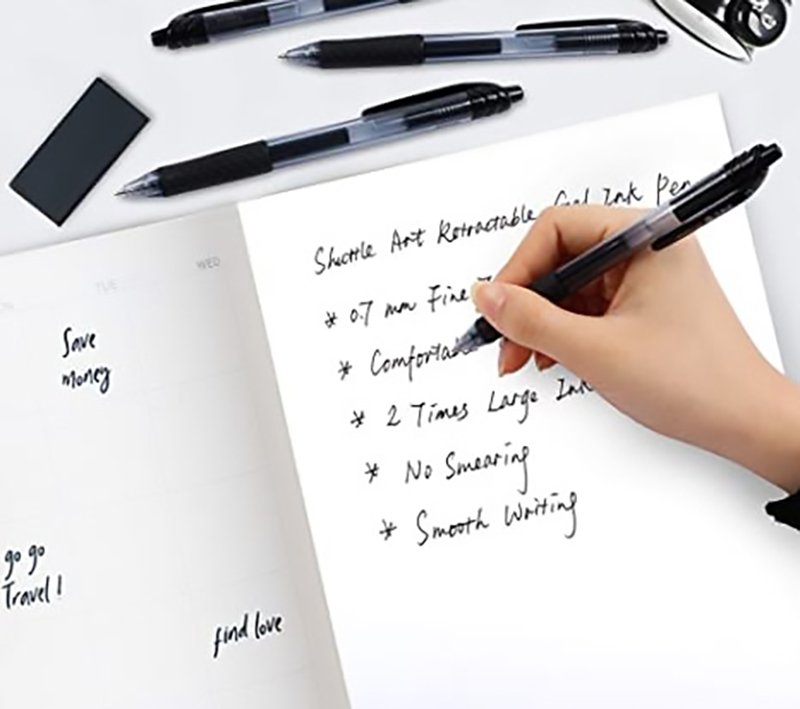 TUE WED
Save
money
go go
Travel !
find love
Shuttle Art Retractable Gel Ink Pen
* 0.7 mm Fine
* Comforta
* 2 Times Large Ink
* No Smearing
* Smooth Writing